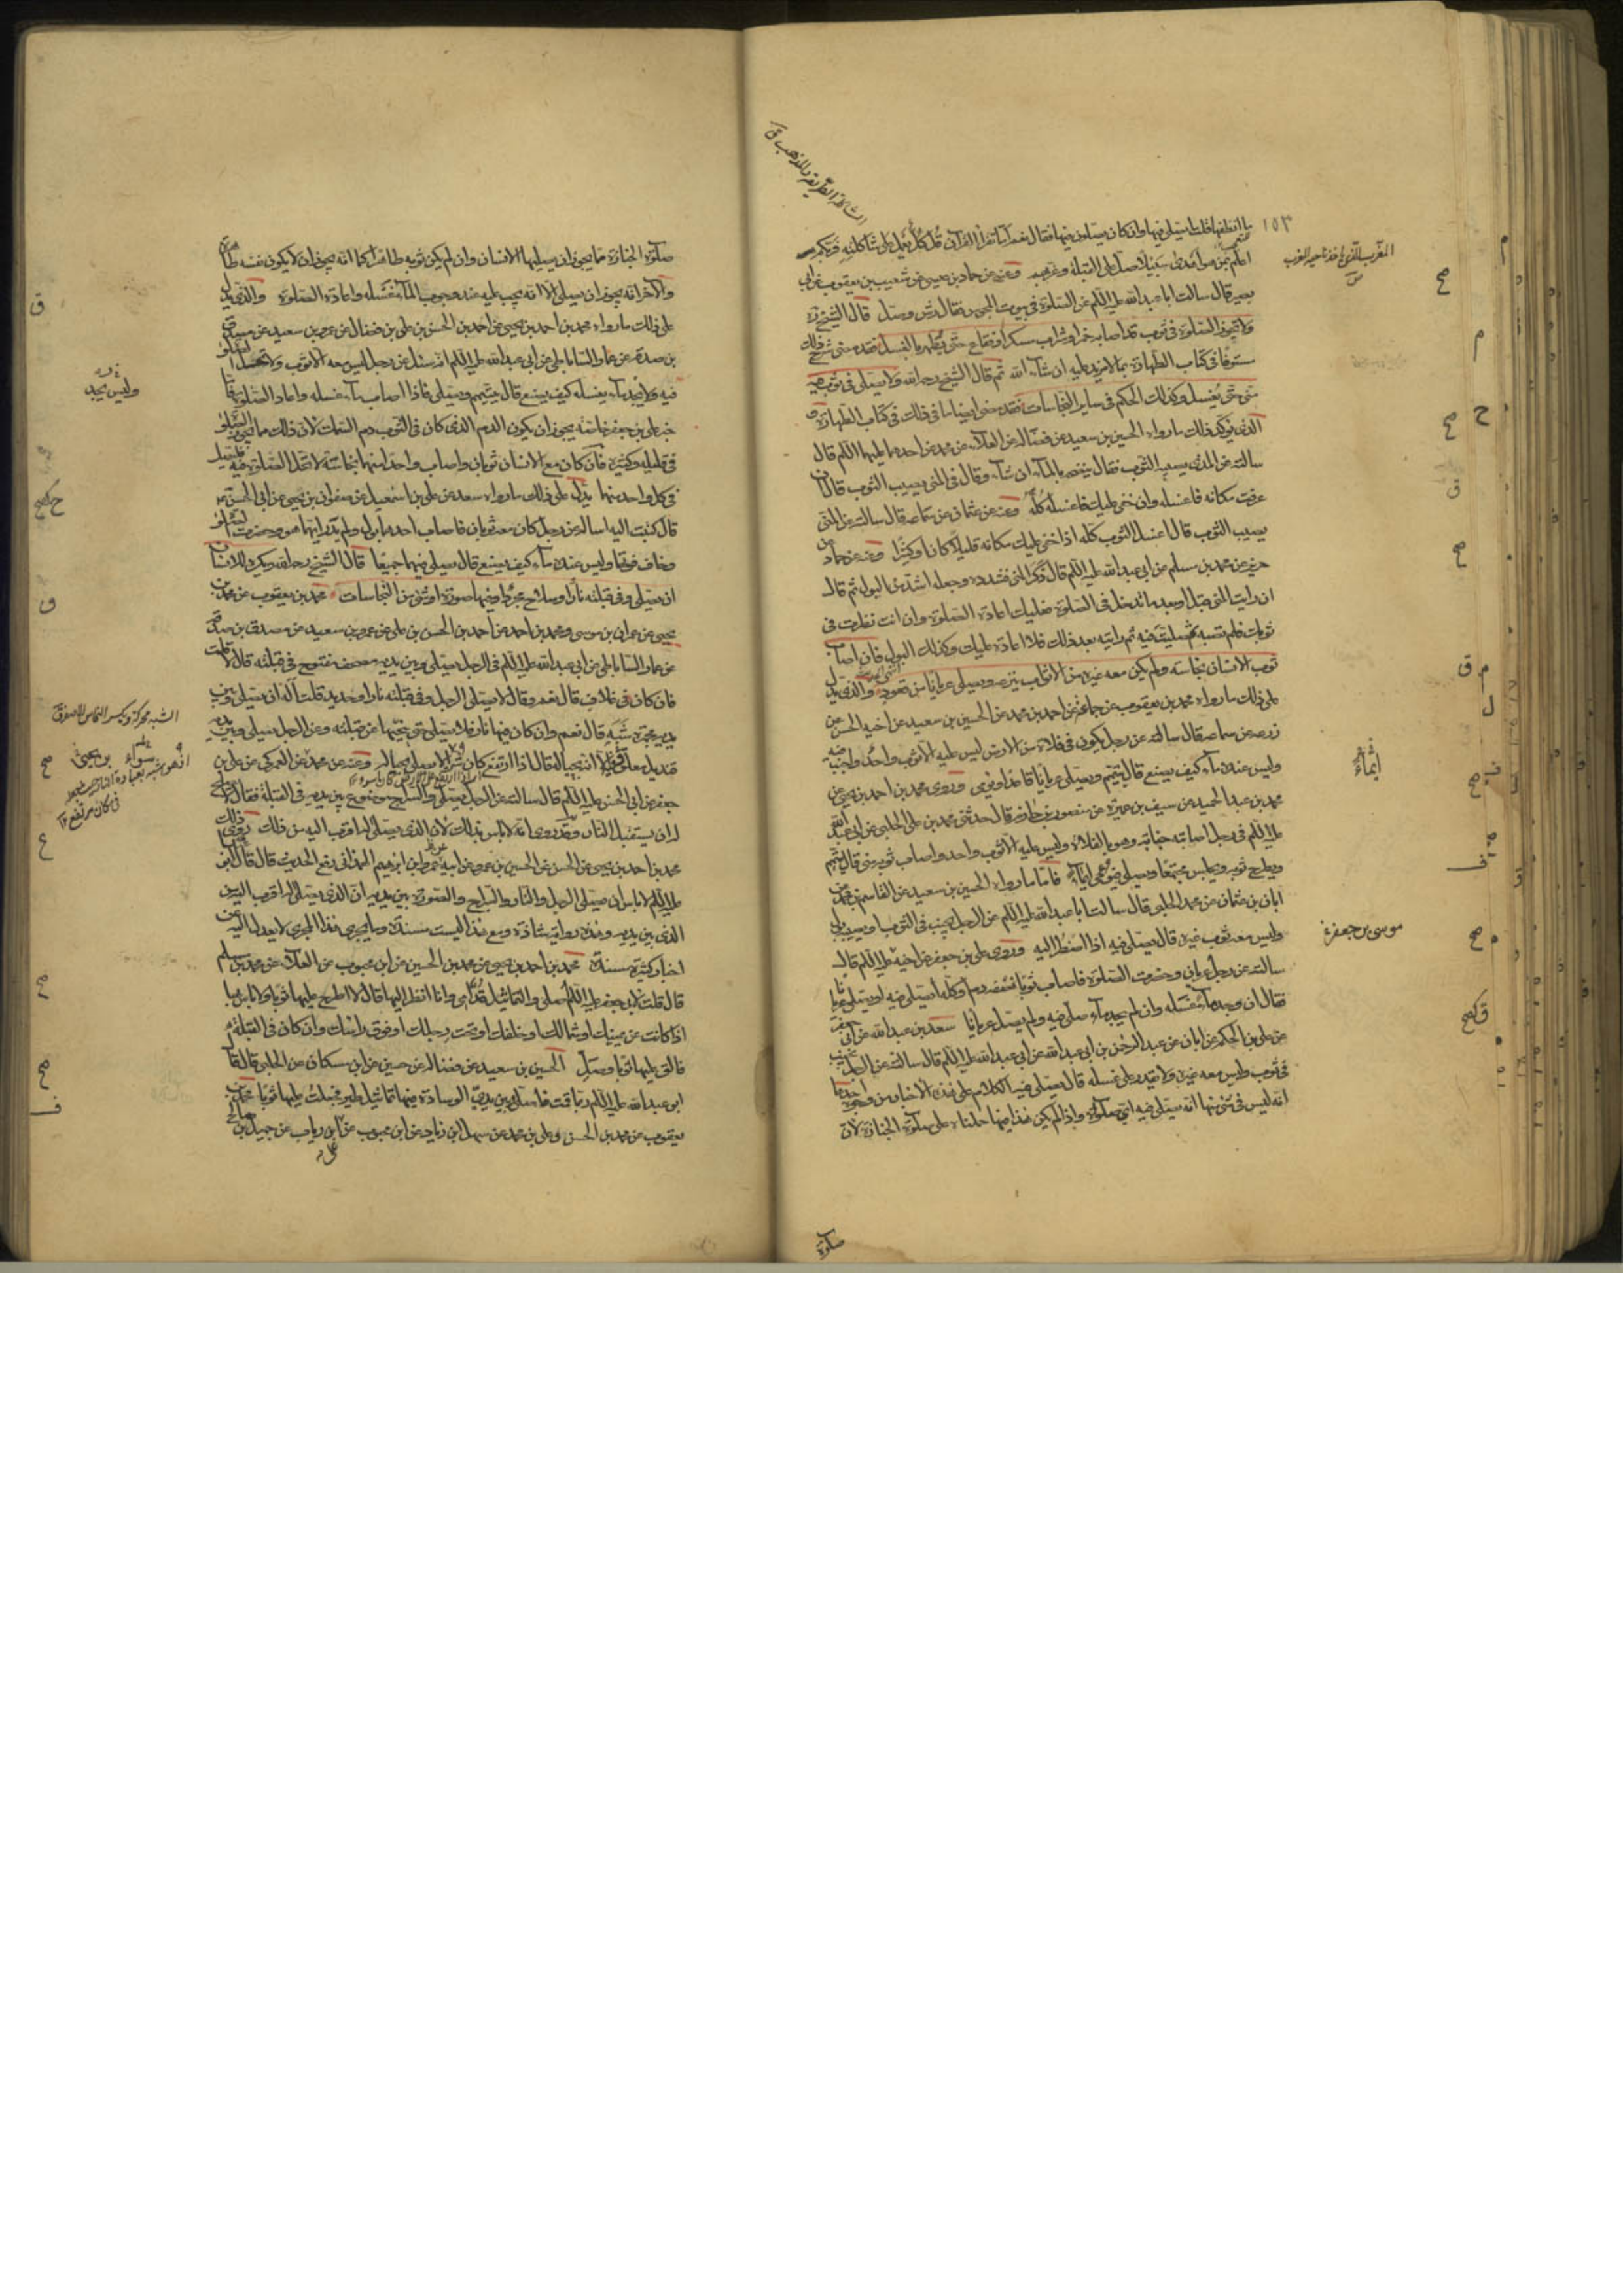 ١٥٣
ما انظفها قلت ايصلى فيها وان كان يصلون فيها فقال نعم اما تقرأ القرآن قل كل يعمل على شاكلته فربكم
اعلم بمن هو اهدى سبيلا صل على القبلة وغربهم وعنه عن حماد بن عيسى عن شعيب بن يعقوب عن ابى
بصير قال سالت ابا عبدالله عليه السلم عن الصلوة فى بيوت المجوس فقال رش وصل قال الشيخ ره
ولا تجوز الصلوة فى ثوب قد اصابه خمر او شراب مسكر او فقاع حتى يطهر بالغسل فقد مضى شرح ذلك
مستوفا فى كتاب الطهارة بما لا مزيد عليه ان شاء الله ثم قال الشيخ رحمه الله ولا يصلى فى ثوب فيه
منى حتى يغسل وكذلك الحكم فى ساير النجاسات فقد مضى ايضا ما فى ذلك فى كتاب الطهارة و
الذى يؤكد ذلك ما رواه الحسين بن سعيد عن فضالة عن العلاء عن محمد عن احدهما عليهما السلم قال
سالته عن المذى يصيب الثوب فقال ينضحه بالماء ان شاء وقال فى المنى يصيب الثوب قال ان
عرفت مكانه فاغسله وان خفى عليك فاغسله كله وعنه عن عثمان عن سماعة قال سالته عن المنى
يصيب الثوب قال اغسل الثوب كله اذا خفى عليك مكانه قليلا كان او كثيرا وعنه عن حماد عن
حريز عن محمد بن مسلم عن ابى عبدالله عليه السلم قال ذكر المنى فشدده وجعله اشد من البول ثم قال
ان رايت المنى قبل او بعد ما تدخل فى الصلوة فعليك اعادة الصلوة وان انت نظرت فى
ثوبك فلم تصبه ثم صليت فيه ثم رايته بعد ذلك فلا اعادة عليك وكذلك البول فان اصاب
ثوب الانسان نجاسة ولم يكن معه غيره من الاثواب ينزعه ويصلى عريانا من قعود والذى يدل
على ذلك ما رواه محمد بن يعقوب عن جماعة عن احمد بن محمد عن الحسين بن سعيد عن اخيه الحسن عن
زرعة عن سماعة قال سالته عن رجل يكون فى فلاة من الارض ليس عليه الا ثوب واحد واجنب فيه
وليس عنده ماء كيف يصنع قال يتيمم ويصلى عريانا قاعدا ويومى وروى محمد بن احمد بن يحيى عن
محمد بن عبد الحميد عن سيف بن عميرة عن منصور بن حازم قال حدثنى محمد بن على الحلبى عن ابى عبدالله
عليه السلم فى رجل اصابته جنابة وهو بالفلاة وليس عليه الا ثوب واحد واصاب ثوبه منى قال يتيمم
ويطرح ثوبه ويجلس مجتمعا ويصلى فيومى ايماء فاما ما رواه الحسين بن سعيد عن القاسم بن محمد عن
ابان بن عثمان عن محمد الحلبى قال سالت ابا عبدالله عليه السلم عن الرجل يجنب فى الثوب او يصيبه بول
وليس معه ثوب غيره قال يصلى فيه اذا اضطر اليه وروى على بن جعفر عن اخيه عليه السلم قال
سالته عن رجل عريان وحضرت الصلوة فاصاب ثوبا نصفه دم او كله ايصلى فيه او يصلى عريانا
فقال ان وجد ماء غسله وان لم يجد ماء صلى فيه ولم يصل عريانا سعد بن عبدالله عن ابى جعفر
عن على بن الحكم عن ابان عن عبد الرحمن بن ابى عبدالله عن ابى عبدالله عليه السلم قال سالته عن الرجل يجنب
فى ثوب وليس معه غيره ولا يقدر على غسله قال يصلى فيه الكلام على هذه الاخبار من وجوه احدها
انه ليس فى شئ منها انه يصلى فيه اى صلوة واذا لم يكن هذا فيها حملناه على صلوة الجنازة لان
صلوة
ايماء
موسى بن جعفر
صلوة الجنازة مما يجوز ان يصليها الانسان وان لم يكن ثوبه طاهرا كما انه يجوز ان لا يكون نفسه طاهرة
والاخر انه يجوز ان يصلى الا انه يجب عليه عند وجوب الماء غسله واعادة الصلوة والذى يدل
على ذلك ما رواه محمد بن احمد بن يحيى عن احمد بن الحسن بن على بن فضال عن عمرو بن سعيد عن مصدق
بن صدقة عن عمار الساباطى عن ابى عبدالله عليه السلم انه سئل عن رجل ليس معه الا ثوب ولا تحل الصلوة
فيه ولا يجد ماء يغسله كيف يصنع قال يتيمم ويصلى فاذا اصاب ماء غسله واعاد الصلوة فاما
خبر على بن جعفر خاصة يجوز ان يكون الدم الذى كان فى الثوب دم السمك لان ذلك مما تجوز الصلوة
فى قليله وكثيره فان كان مع الانسان ثوبان واصاب واحدا منهما نجاسة لا تحل الصلوة فيه فليصل
فى كل واحد منهما يدل على ذلك ما رواه سعد عن على بن اسمعيل عن صفوان بن يحيى عن ابى الحسن عم
قال كتبت اليه اساله عن رجل كان معه ثوبان فاصاب احدهما بول ولم يدر ايهما هو وحضرت الصلوة
وخاف فوتها وليس عنده ماء كيف يصنع قال يصلى فيهما جميعا قال الشيخ رحمه الله ويكره للانسان
ان يصلى وفى قبلته نار او سلاح مجرد او فيها صورة او شئ من النجاسات محمد بن يعقوب عن محمد بن
يحيى عن عمران بن موسى ومحمد بن احمد عن احمد بن الحسن بن على عن عمرو بن سعيد عن مصدق بن صدقة
عن عمار الساباطى عن ابى عبدالله عليه السلم فى الرجل يصلى وبين يديه مصحف مفتوح فى قبلته قال لا قلت
فان كان فى غلاف قال نعم وقال لا يصلى الرجل وفى قبلته نار او حديد قلت اله ان يصلى وبين
يديه مجمرة شبه قال نعم وان كان فيها نار فلا يصلى حتى ينحيها عن قبلته وعن الرجل يصلى وبين يديه
قنديل معلق وفيه نار الا انه بحياله قال اذا ارتفع كان شرا لا يصلى بحياله وعنه عن محمد عن العمركى عن على بن
جعفر عن ابى الحسن عليه السلم قال سالته عن الرجل يصلى والسراج موضوع بين يديه فى القبلة فقال لا يصلح
له ان يستقبل النار وقد روى انه لا باس بذلك لان الذى يصلى له اقرب اليه من ذلك روى ذلك
محمد بن احمد بن يحيى عن الحسن عن الحسين بن عمرو عن ابيه عمرو بن ابرهيم الهمدانى رفع الحديث قال قال ابو عبدالله
عليه السلم لا باس ان يصلى الرجل والنار والسراج والصورة بين يديه ان الذى يصلى له اقرب اليه من
الذى بين يديه وهذه رواية شاذة ومع هذا ليست مسندة وما يجرى هذا المجرى لا يعدل اليه عن
اخبار كثيرة مسندة محمد بن احمد بن يحيى عن محمد بن الحسين عن ابن محبوب عن العلاء عن محمد بن مسلم
قال قلت لابى جعفر عليه السلم اصلى والتماثيل قدامى وانا انظر اليها قال لا اطرح عليها ثوبا ولا باس بها
اذا كانت عن يمينك او شمالك او خلفك او تحت رجلك او فوق راسك وان كان فى القبلة
فالق عليها ثوبا وصل الحسين بن سعيد عن فضالة عن حسين عن ابن مسكان عن الحلبى قال قال
ابو عبدالله عليه السلم ربما قمت فاصلى وبين يدى الوسادة فيها تماثيل طير فجعلت عليها ثوبا محمد بن
يعقوب عن محمد بن الحسن وعلى بن محمد عن سهل ابن زياد عن ابن محبوب عن ابن رياب عن جميل بن صالح
وليس يجد